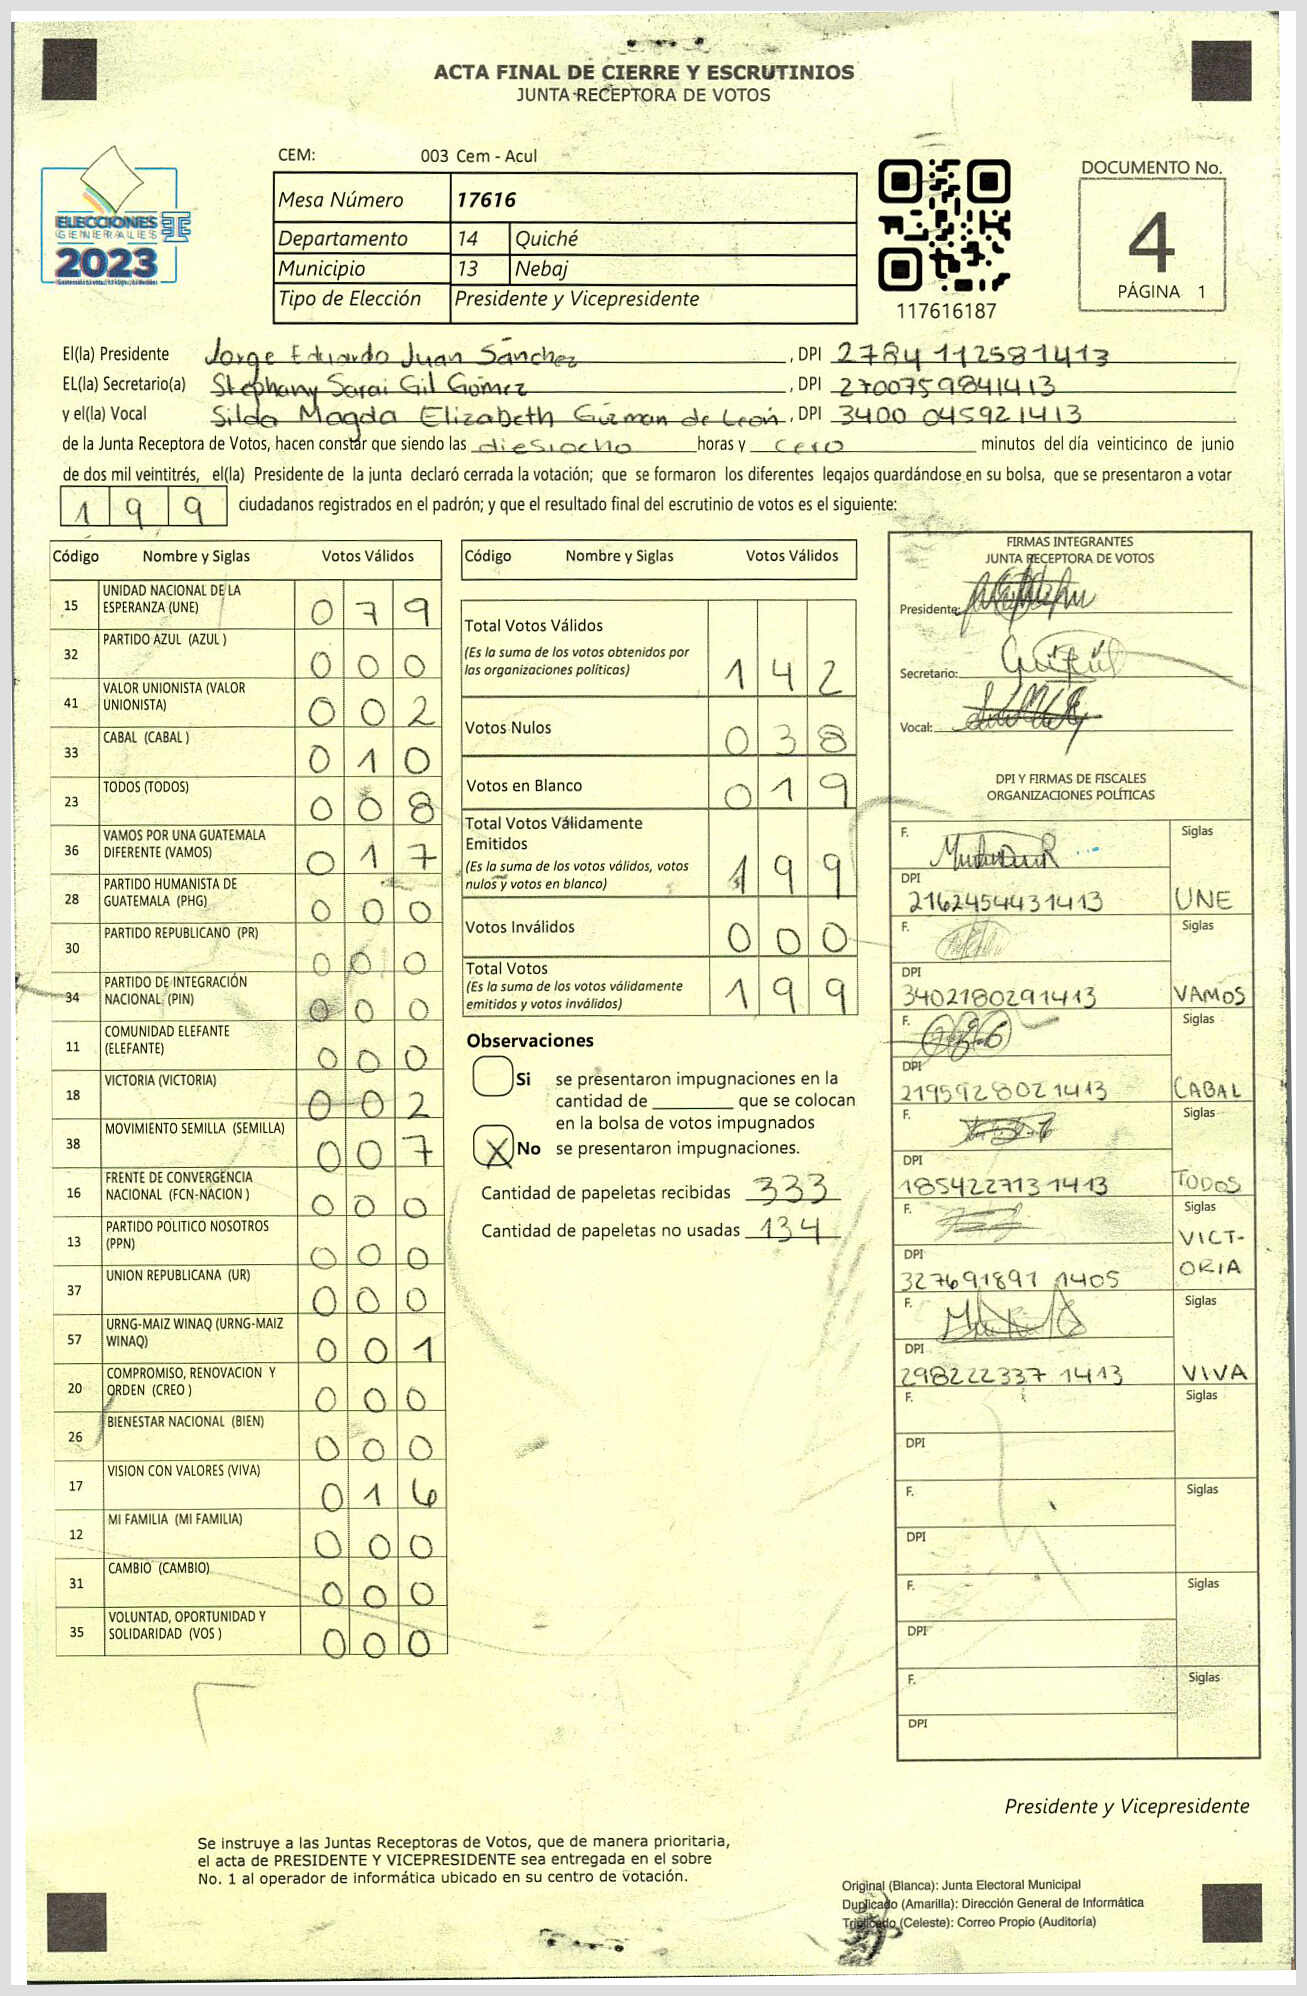 ACTA FINAL DE CIERRE Y ESCRUTINIOS
JUNTA RECEPTORA DE VOTOS
ELECCIONES
GENERALES
2023
CEM: 003 Cem - Acul
Mesa Número 17616
Departamento 14 Quiché
Municipio 13 Nebaj
Tipo de Elección Presidente y Vicepresidente
117616187
DOCUMENTO No.
4
PÁGINA 1
El(la) Presidente Jorge Eduardo Juan Sánchez, DPI 2784 112581413
EL(la) Secretario(a) Stephany Sarai Gil Gómez, DPI 2700759841413
y el(la) Vocal Silda Magda Elizabeth Guzman de León, DPI 3400 045921413
de la Junta Receptora de Votos, hacen constar que siendo las diesiocho horas y cero minutos del día veinticinco de junio
de dos mil veintitrés, el(la) Presidente de la junta declaró cerrada la votación; que se formaron los diferentes legajos guardándose en su bolsa, que se presentaron a votar
199 ciudadanos registrados en el padrón; y que el resultado final del escrutinio de votos es el siguiente:
Código Nombre y Siglas Votos Válidos
15 UNIDAD NACIONAL DE LA
ESPERANZA (UNE) 079
32 PARTIDO AZUL (AZUL ) 000
41 VALOR UNIONISTA (VALOR
UNIONISTA) 002
33 CABAL (CABAL ) 010
23 TODOS (TODOS) 008
36 VAMOS POR UNA GUATEMALA
DIFERENTE (VAMOS) 017
28 PARTIDO HUMANISTA DE
GUATEMALA (PHG) 000
30 PARTIDO REPUBLICANO (PR) 000
34 PARTIDO DE INTEGRACIÓN
NACIONAL (PIN) 000
11 COMUNIDAD ELEFANTE
(ELEFANTE) 000
18 VICTORIA (VICTORIA) 002
38 MOVIMIENTO SEMILLA (SEMILLA) 007
16 FRENTE DE CONVERGENCIA
NACIONAL (FCN-NACION ) 000
13 PARTIDO POLITICO NOSOTROS
(PPN) 000
37 UNION REPUBLICANA (UR) 000
57 URNG-MAIZ WINAQ (URNG-MAIZ
WINAQ) 001
20 COMPROMISO, RENOVACION Y
ORDEN (CREO ) 000
26 BIENESTAR NACIONAL (BIEN) 000
17 VISION CON VALORES (VIVA) 016
12 MI FAMILIA (MI FAMILIA) 000
31 CAMBIO (CAMBIO) 000
35 VOLUNTAD, OPORTUNIDAD Y
SOLIDARIDAD (VOS ) 000
Código Nombre y Siglas Votos Válidos
Total Votos Válidos
(Es la suma de los votos obtenidos por
las organizaciones políticas) 142
Votos Nulos 038
Votos en Blanco 019
Total Votos Válidamente
Emitidos
(Es la suma de los votos válidos, votos
nulos y votos en blanco) 199
Votos Inválidos 000
Total Votos
(Es la suma de los votos válidamente
emitidos y votos inválidos) 199
Observaciones
Si se presentaron impugnaciones en la
cantidad de ________ que se colocan
en la bolsa de votos impugnados
X No se presentaron impugnaciones.
Cantidad de papeletas recibidas 333
Cantidad de papeletas no usadas 134
FIRMAS INTEGRANTES
JUNTA RECEPTORA DE VOTOS
Presidente:
Secretario:
Vocal:
DPI Y FIRMAS DE FISCALES
ORGANIZACIONES POLÍTICAS
F. Siglas
DPI
2162454431413 UNE
F. Siglas
DPI
3402180291413 VAMOS
F. Siglas
DPI
2195928021413 CABAL
F. Siglas
DPI
1854227131413 TODOS
F. Siglas
VICT-
DPI ORIA
327691891 1405
F. Siglas
DPI
298222337 1413 VIVA
F. Siglas
DPI
F. Siglas
DPI
F. Siglas
DPI
F. Siglas
DPI
Presidente y Vicepresidente
Se instruye a las Juntas Receptoras de Votos, que de manera prioritaria,
el acta de PRESIDENTE Y VICEPRESIDENTE sea entregada en el sobre
No. 1 al operador de informática ubicado en su centro de votación.
Original (Blanca): Junta Electoral Municipal
Duplicado (Amarilla): Dirección General de Informática
Triplicado (Celeste): Correo Propio (Auditoría)